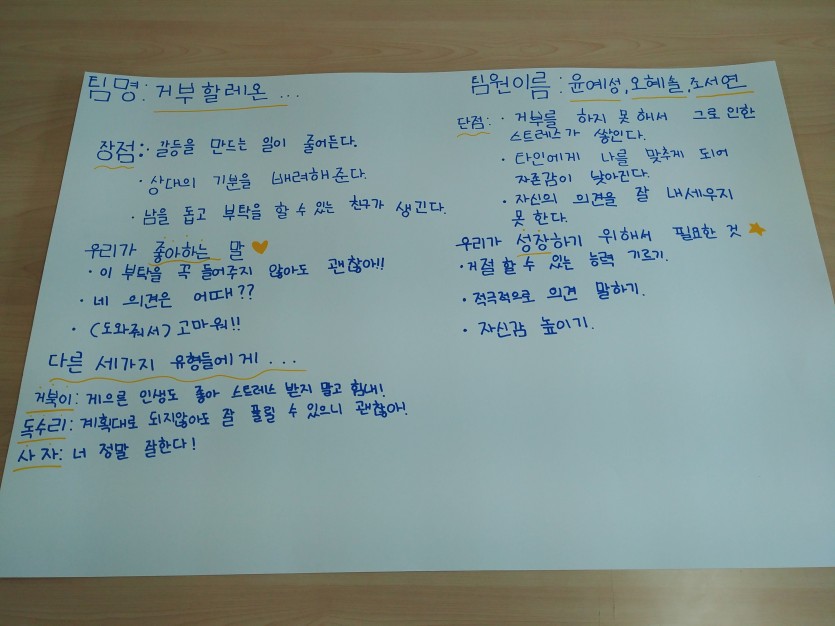 팀명: 거부할레온 ...
장점: · 갈등을 만드는 일이 줄어든다.
· 상대의 기분을 배려해준다.
· 남을 돕고 부탁을 할 수 있는 친구가 생긴다.
우리가 좋아하는 말
· 이 부탁을 꼭 들어주지 않아도 괜찮아!!
· 네 의견은 어때??
· (도와줘서) 고마워!!
다른 세가지 유형들에게 ...
거북이: 게으른 인생도 좋아 스트레스 받지 말고 힘내!
독수리: 계획대로 되지않아도 잘 풀릴 수 있으니 괜찮아!
사자: 너 정말 잘한다!
팀원이름: 윤예성, 오혜솔, 조서연
단점: · 거부를 하지 못 해서 그로 인한
스트레스가 쌓인다.
· 타인에게 나를 맞추게 되어
자존감이 낮아진다.
· 자신의 의견을 잘 내세우지
못 한다.
우리가 성장하기 위해서 필요한 것
· 거절 할 수 있는 능력 기르기.
· 적극적으로 의견 말하기.
· 자신감 높이기.